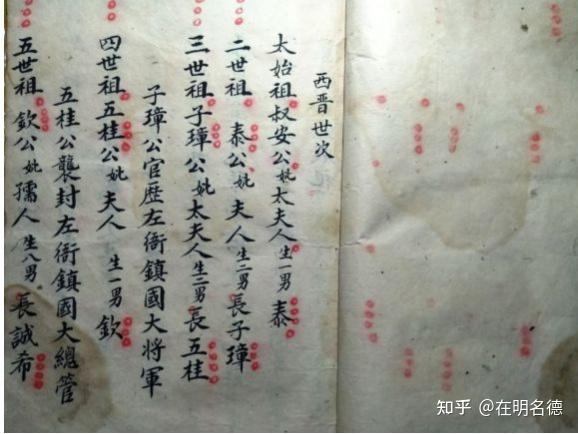 西晋世次
太始祖叔安公妣太夫人生一男泰
二世祖 泰公妣 夫人生二男長子璋
三世祖子璋公妣太夫人生二男長五桂
子璋公官歷左衙鎮國大将軍
四世祖五桂公妣夫人 生一男欽
五桂公襲封左衙鎮國大總管
五世祖 欽公妣 孺人生八男長誠希
知乎 @在明名德